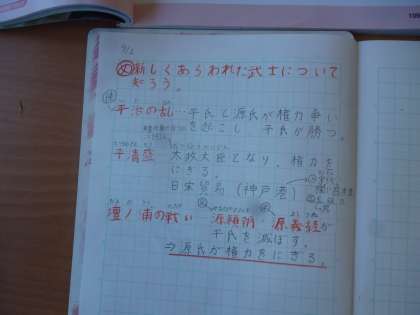 9/2
め 新しくあらわれた武士について
知ろう。
平治の乱…平氏と源氏が権力争い
を起こし 平氏が勝つ。
平清盛 太政大臣となり、権力を
にぎる。
日宋貿易(神戸港)
壇ノ浦の戦い 源頼朝・源義経が
平氏を滅ぼす。
⇒源氏が権力をにぎる。